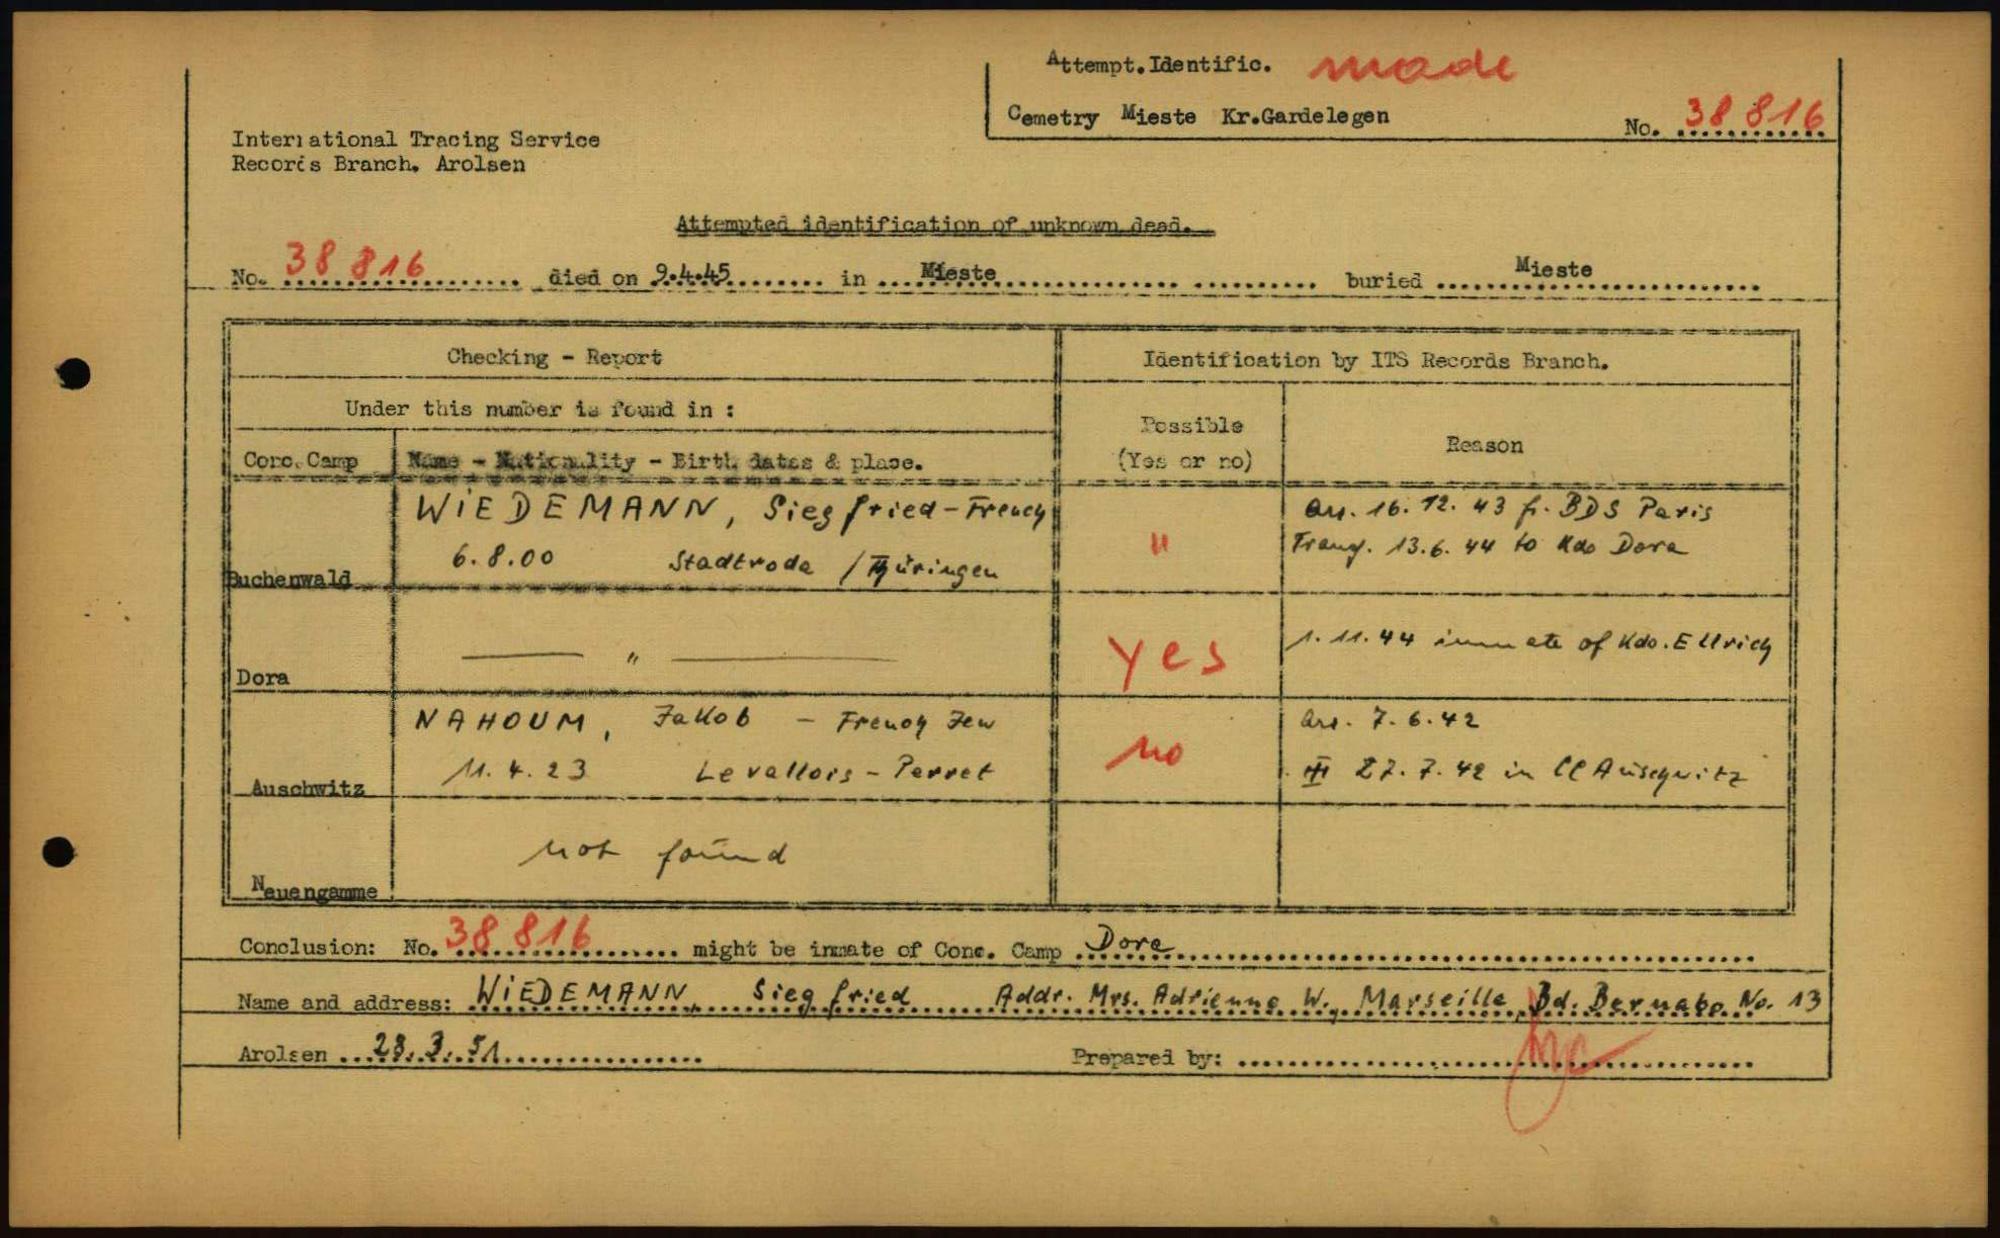 Attempt.Identific. made
Cemetry Mieste Kr.Gardelegen No. 38 816
International Tracing Service
Records Branch. Arolsen
Attempted identification of unknown dead.
No. 38 816 died on 9.4.45 in Mieste buried Mieste
Checking - Report Identification by ITS Records Branch.
Under this number is found in :
Possible
(Yes or no) Reason
Conc. Camp Name - Nationality - Birth dates & place.
WIEDEMANN, Siegfried - French Arr. 16.12.43 fr. BDS Paris
Buchenwald 6.8.00 Stadtroda / Thüringen " Transf. 13.6.44 to Kdo Dora
Dora " yes 1.11.44 inmate of Kdo. Ellrich
NAHOUM, Jakob - French Jew no Arr. 7.6.42
Auschwitz 11.4.23 Levallois - Perret 27.7.42 in CC Auschwitz
Neuengamme not found
Conclusion: No. 38 816 might be inmate of Conc. Camp Dora
Name and address: WIEDEMANN, Siegfried Addr. Mrs. Adrienne W., Marseille, Bd. Bernabo No. 13
Arolsen 28.3.51 Prepared by: